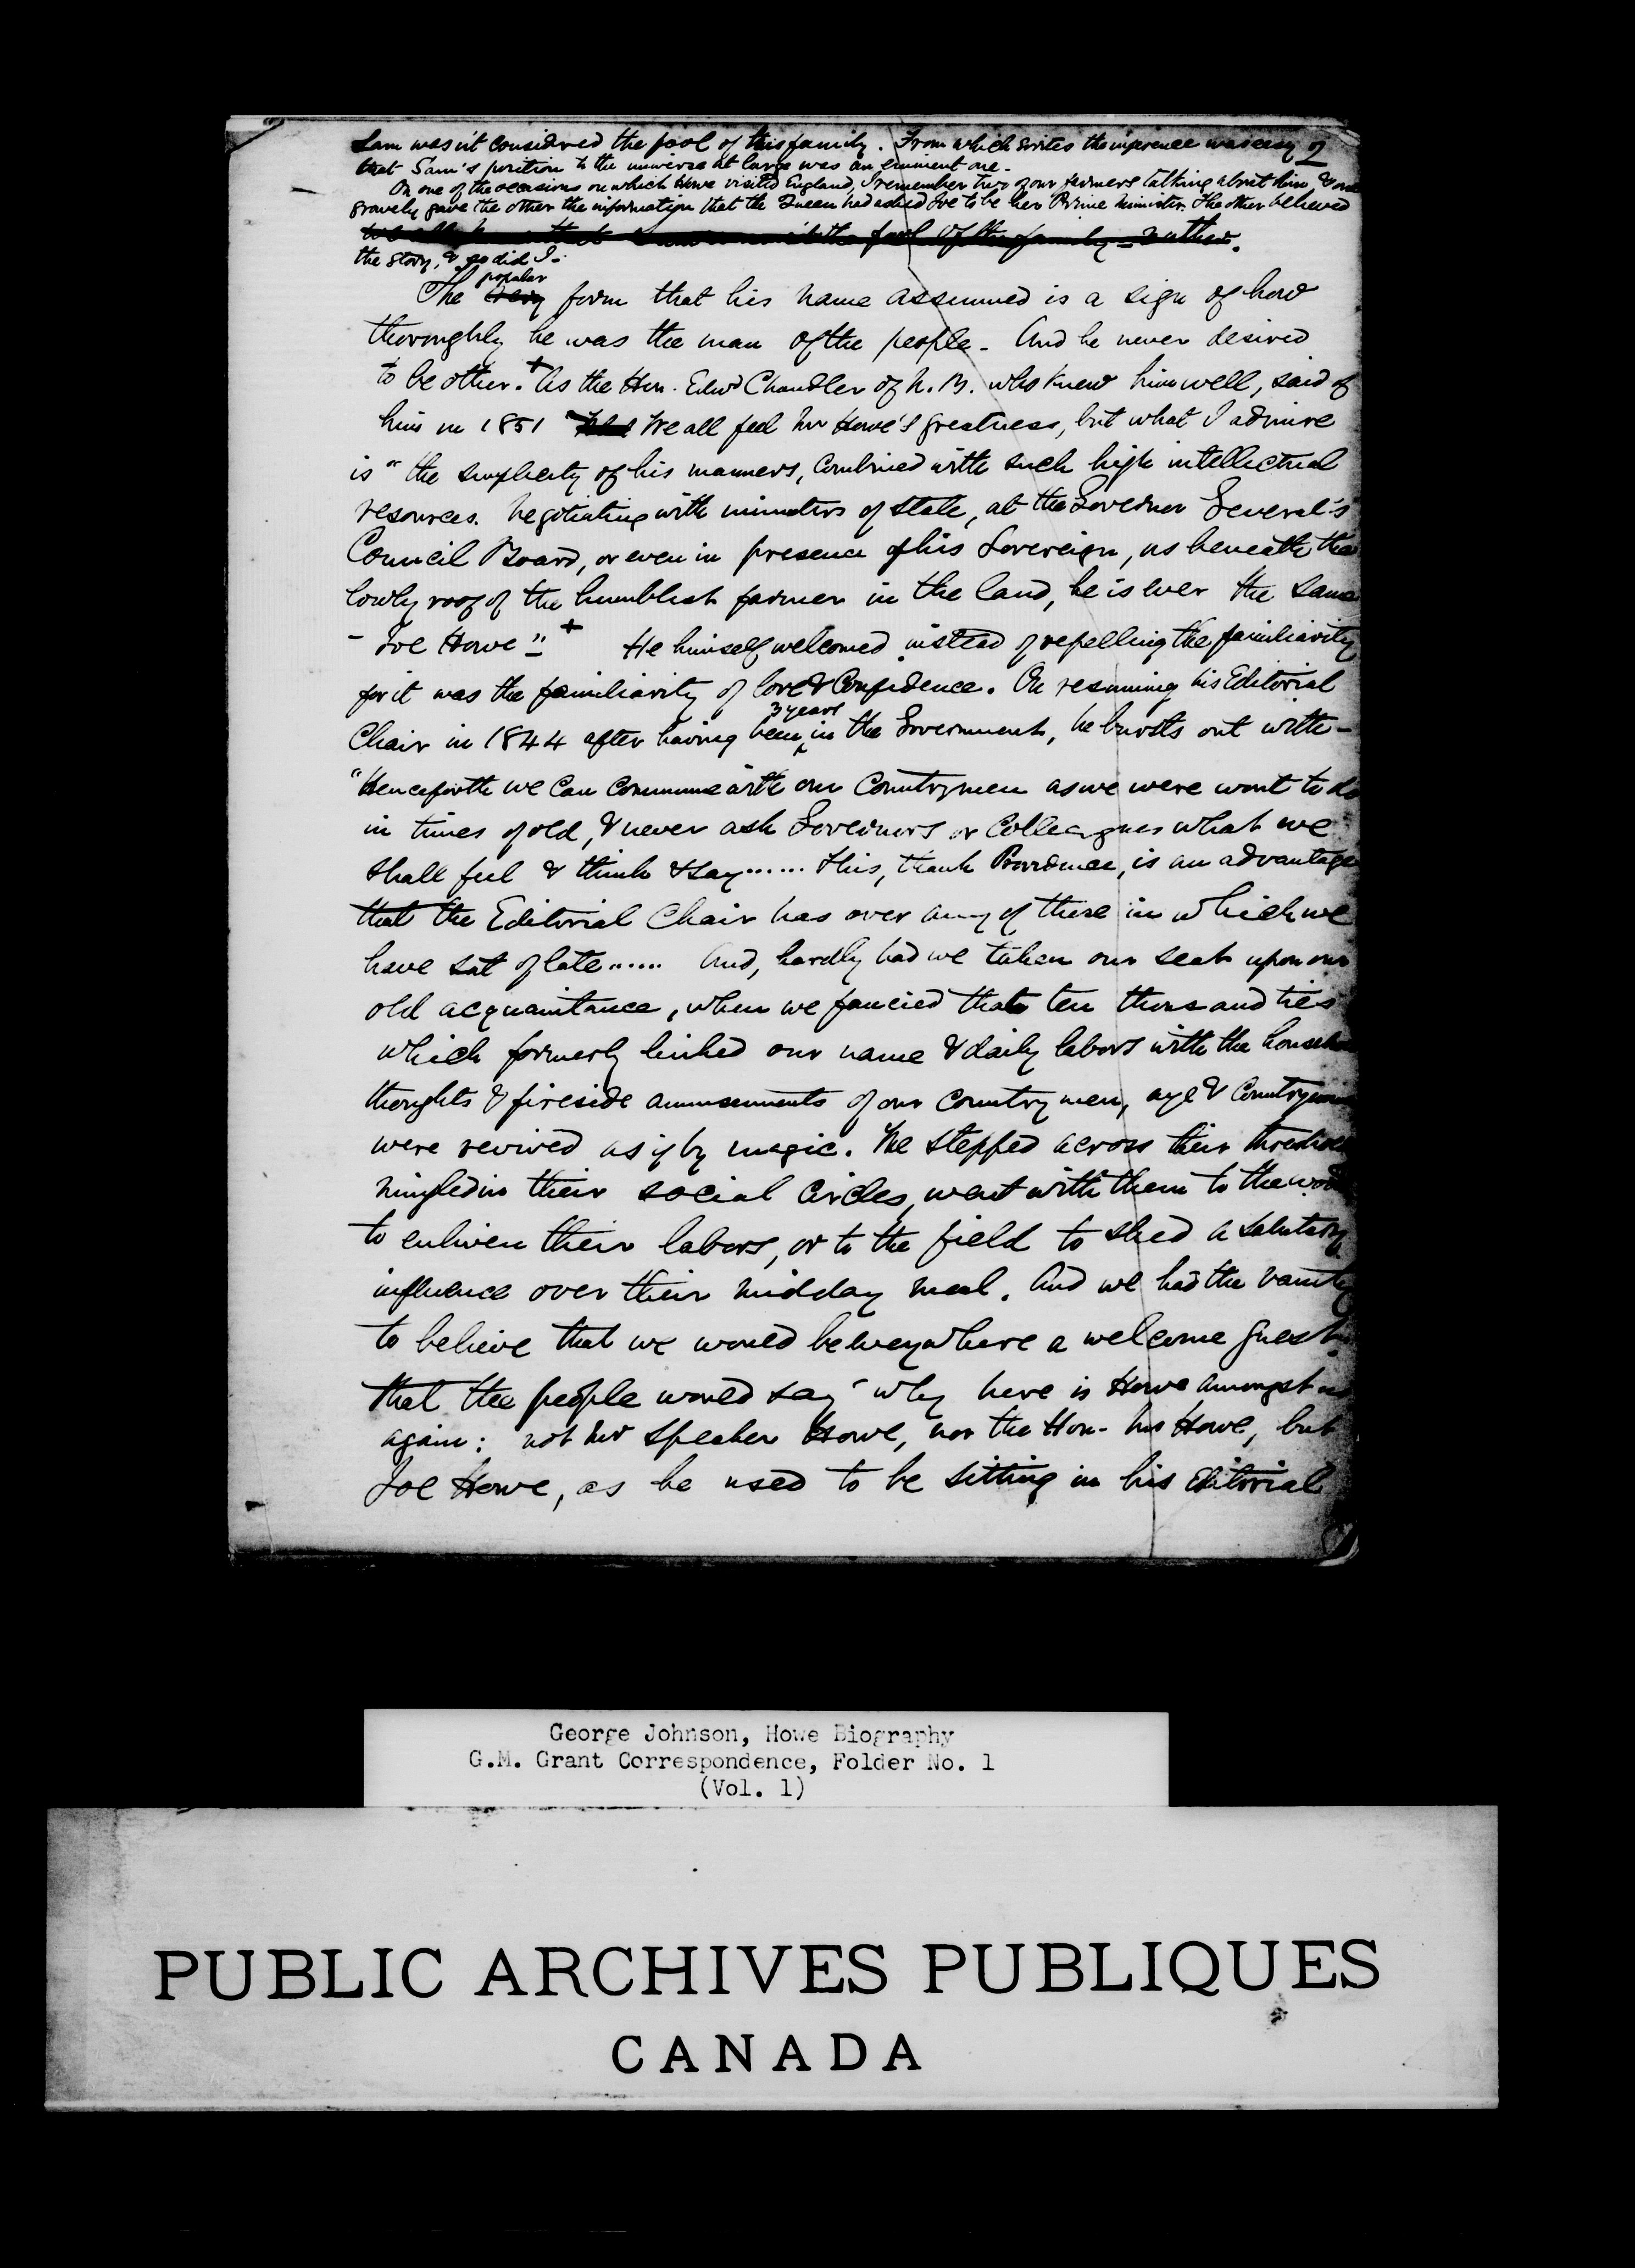 Sam was'nt considered the fool of this family. From which [...] the inference was easy
that Sam's position to the universe at large was an eminent one.
On one of the occasions on which Howe visited England, I remember two of our farmers talking about him, & one
gravely gave the other the information that the Queen had asked Joe to be her Prime Minister. The other believed
fool of the family
the story, & so did I.
popular
The very form that his name assumed is a sign of how
thoroughly he was the man of the people. And he never desired
to be other.+ As the Hon. Edwd Chandler of N. B. who knew him well, said of
him in 1851 We all feel Mr Howe's greatness, but what I admire
is "the simplicity of his manners, combined with such high intellectual
resources. Negotiating with ministers of state, at the Governor General's
Council Board, or even in presence of his Sovereign, as beneath the
lowly roof of the humblest farmer in the land, he is ever the same
- Joe Howe" + He himself welcomed instead of repelling the familiarity
for it was the familiarity of love & confidence. On resuming his Editorial
3 years
Chair in 1844 after having been in the Government, he bursts out with -
"Henceforth we can commune with our Countrymen as we were wont to do
in times of old, & never ask Governors or Colleagues what we
shall feel & think & say...... This, thank Providence, is an advantage
that the Editorial Chair has over any of those in which we
have sat of late...... And, hardly had we taken our seat upon our
old acquaintance, when we fancied that ten thousand ties
which formerly linked our name & daily labors with the househo
thoughts & fireside amusements of our countrymen, aye & Countrywom
were revived as if by magic. We stepped across their threshol
mingled in their social circles, went with them to the wood
to enliven their labors, or to the field to shed a salutary
influence over their midday meal. And we had the vanity
to believe that we would be everywhere a welcome guest
that the people would say "Why here is Howe amongst us
again: not Mr Speaker Howe, nor the Hon. Mr Howe, but
Joe Howe, as he used to be sitting in his Editorial
George Johnson, Howe Biography
G.M. Grant Correspondence, Folder No. 1
(Vol. 1)
PUBLIC ARCHIVES PUBLIQUES
CANADA